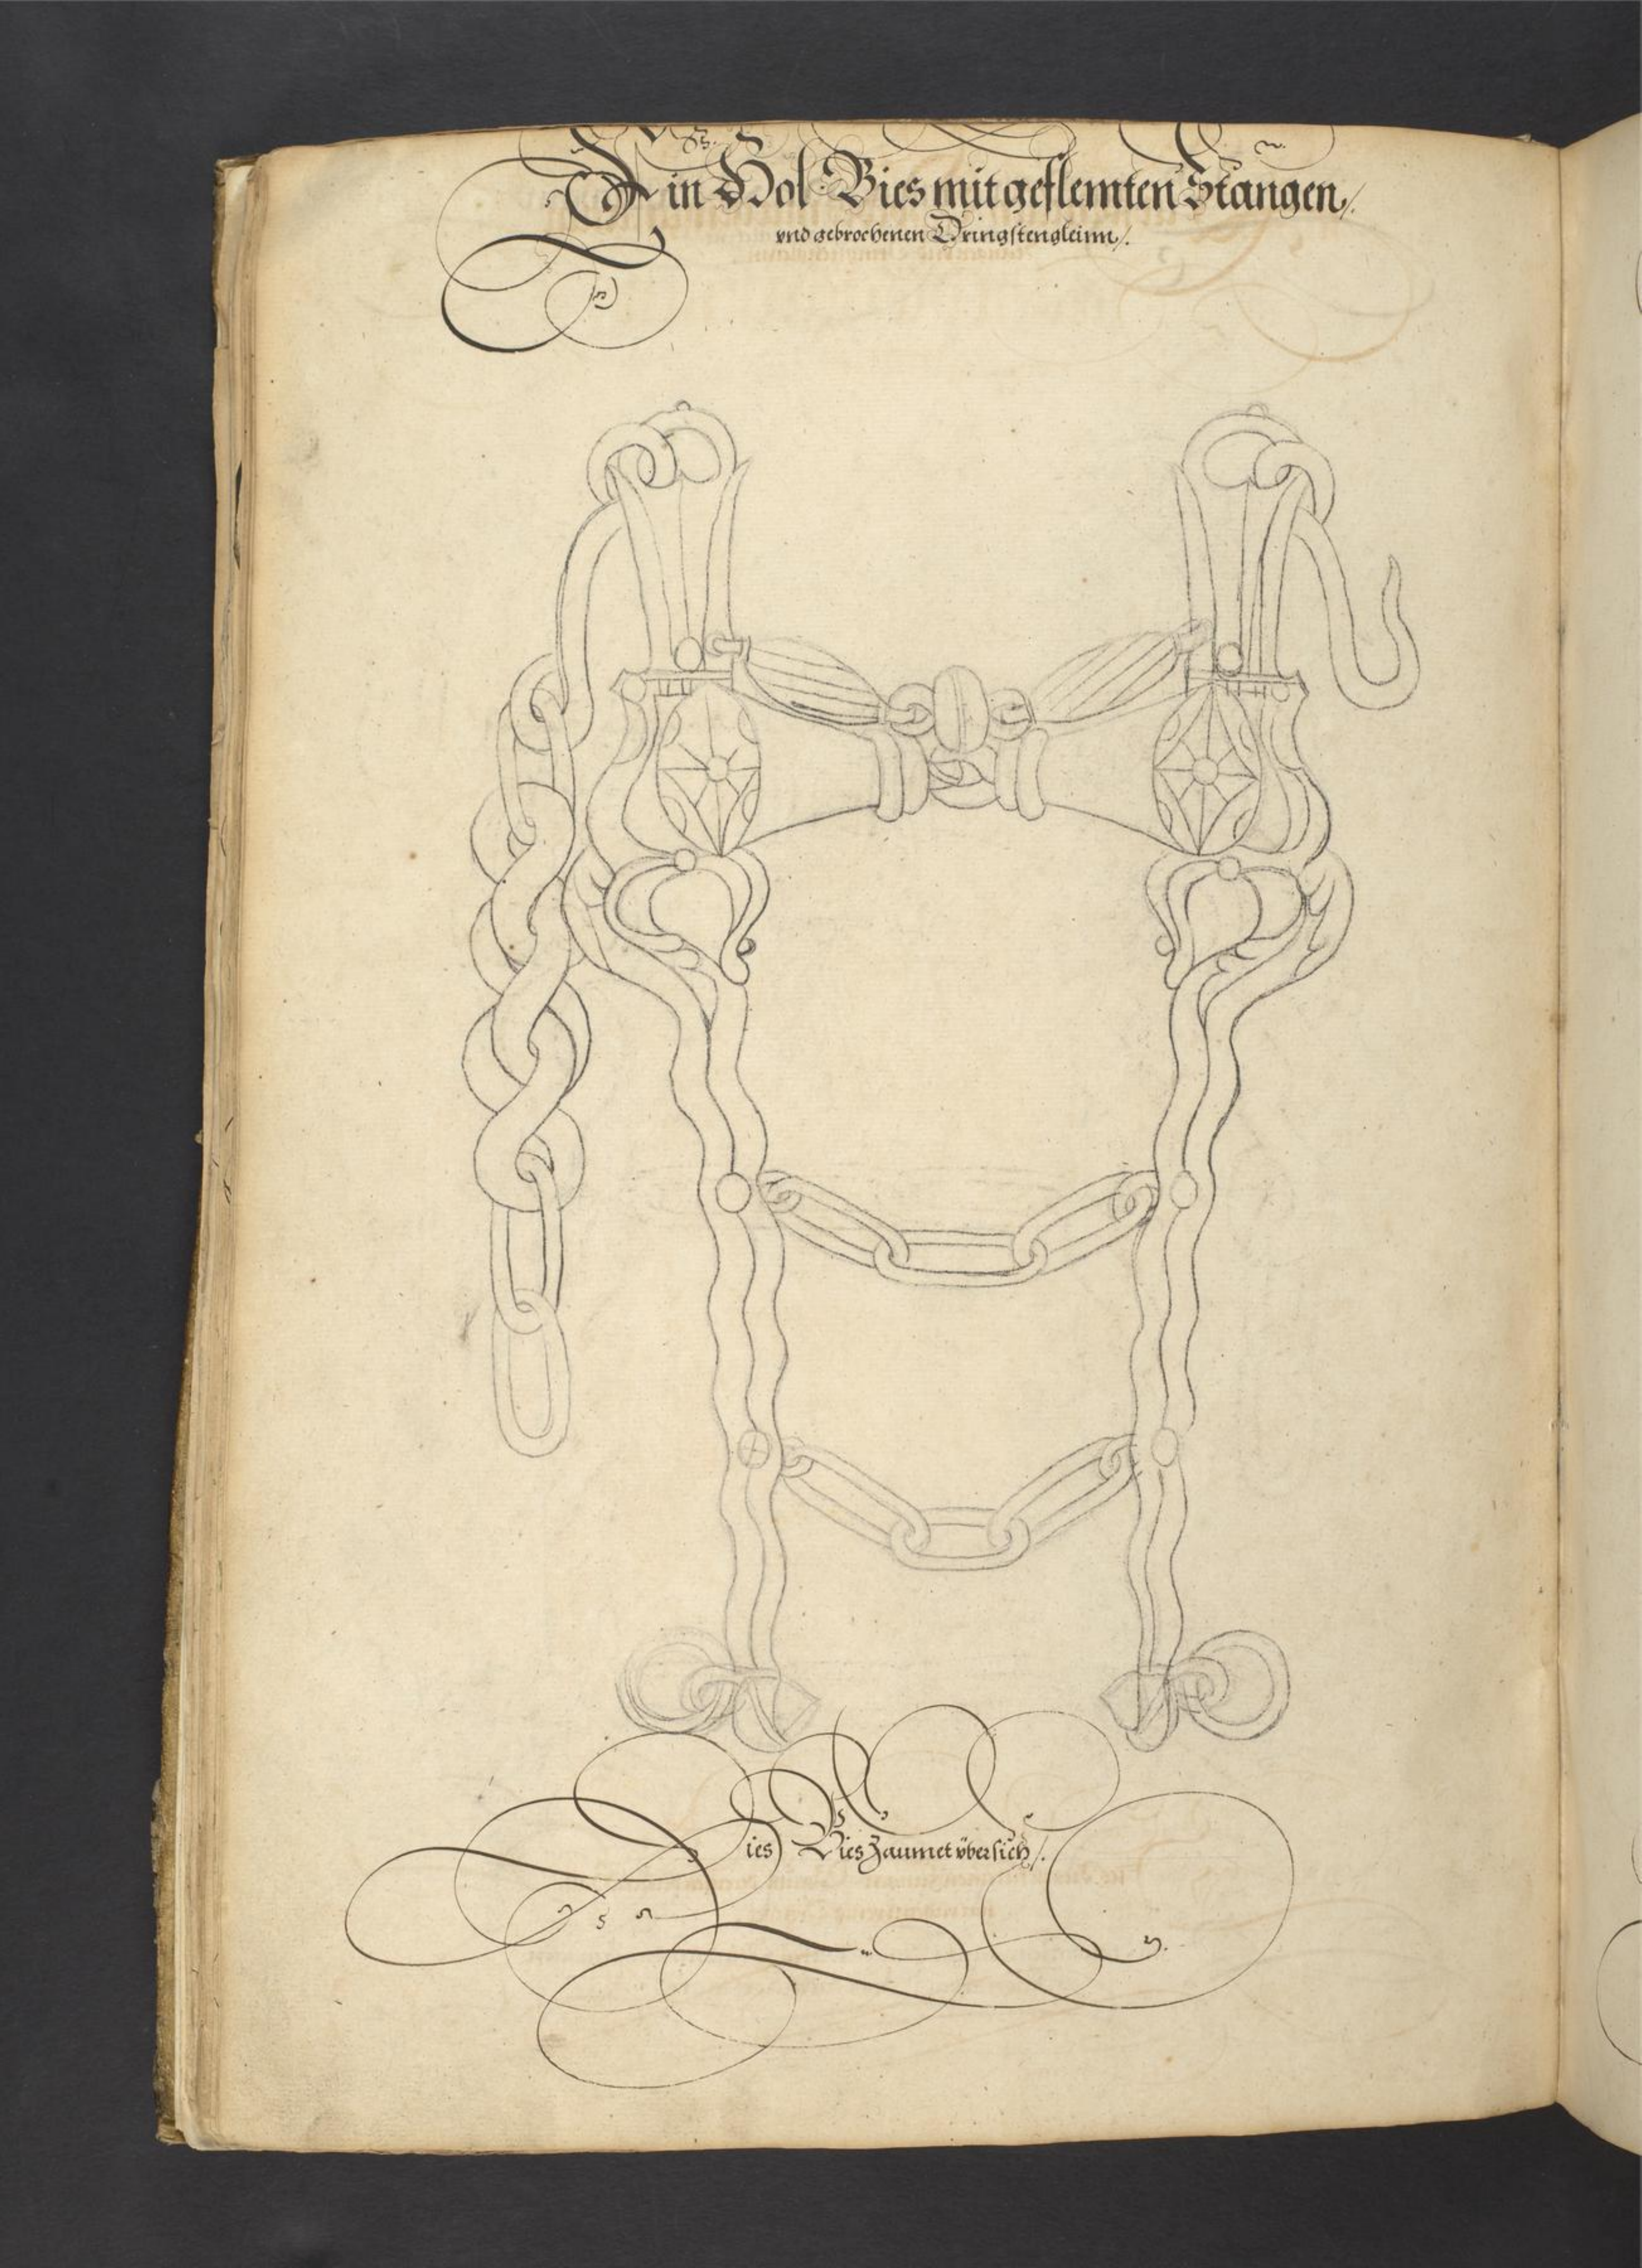 Ein Hol Bies mit geflemten Stangen /.
vnd gebrochenen Dringstengleinn /.
Dies Bies Zaumet vbersich /.